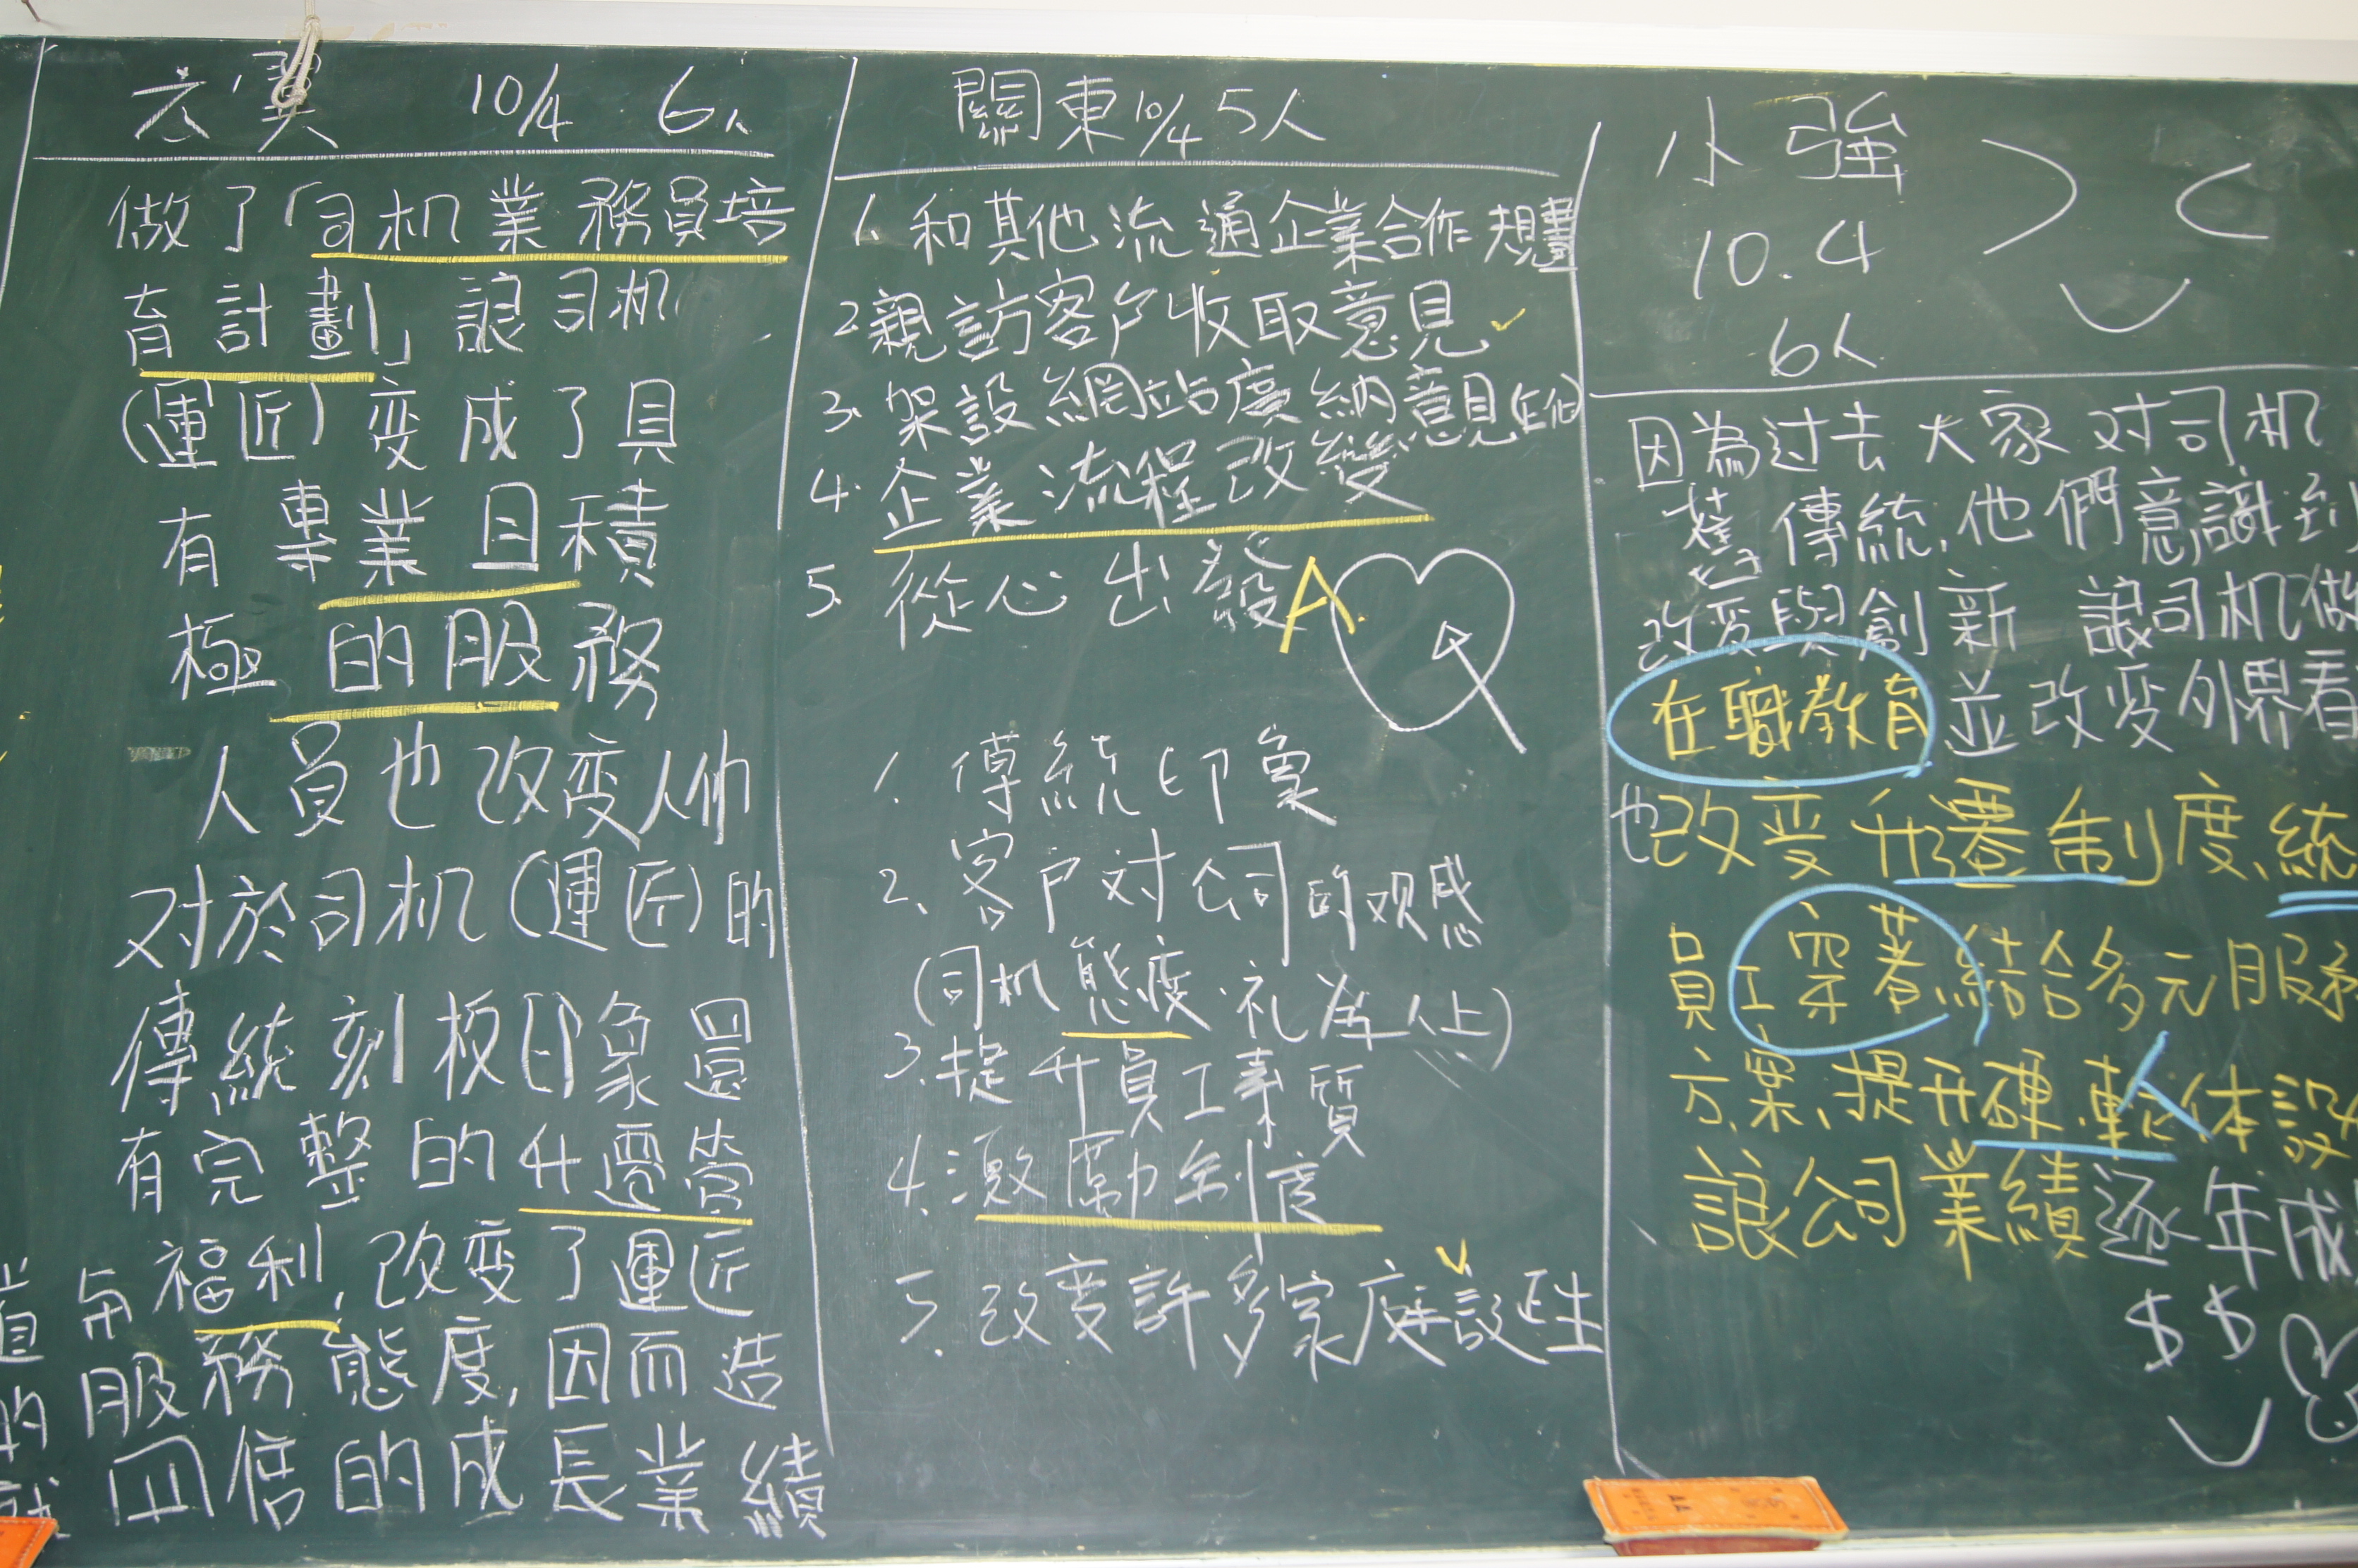 玄寶 10/4 6人
做了「司机業務員培
育計劃」讓司机
(運匠)变成了具
有專業且積
極的服務
人員也改变人們
对於司机(運匠)的
傳統刻板印象還
有完整的升遷
与福利,改变了運匠
服務態度,因而造
四倍的成長業績
關東 10/4 5人
1. 和其他流通企業合作規畫
2. 親訪客戶收取意見 ✓
3. 架設網站廣納意見
4. 企業流程改變
5. 從心出發 A
1. 傳統印象
2. 客戶对公司的观感
(司机態度.礼為人上)
3. 提升員工素質
4. 激勵制度
5. 改变許多家庭誕生
小強
10.4
6人
因為过去大家对司机
傳統,他們意識到
改变與創新 讓司机做
在職教育並改变外界看
也改变升遷制度、統
員工穿著、結合多元服務
方案、提升硬.軟人体設
讓公司業績逐年成
$ $